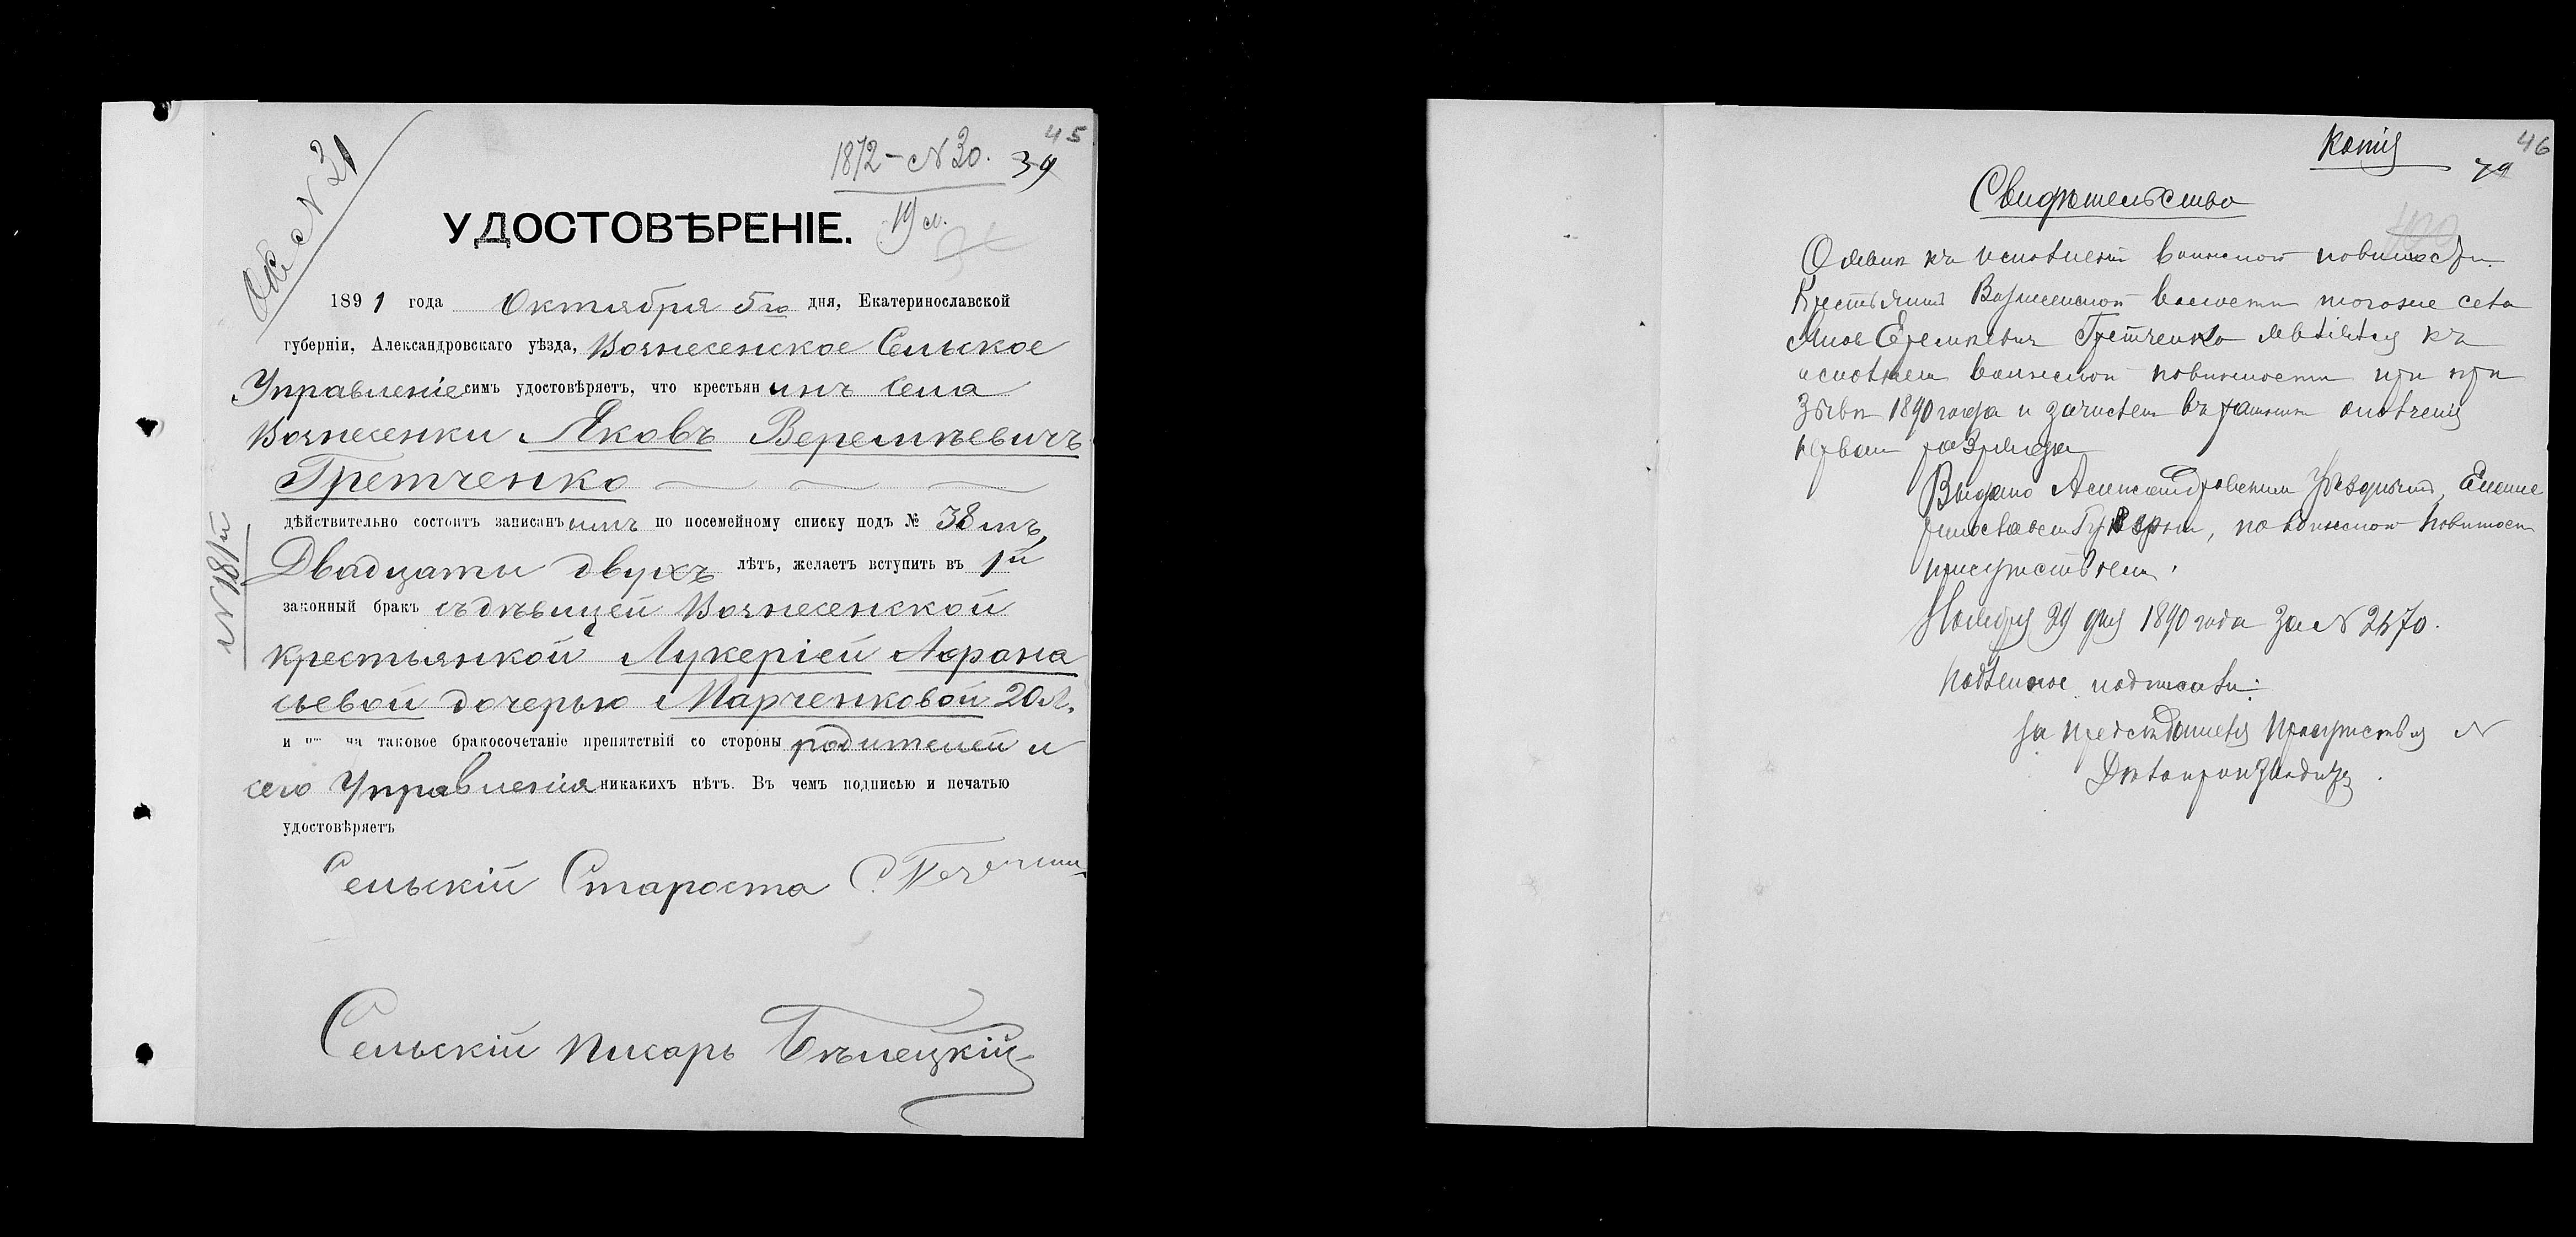 45
1872 - № 30.
39
19 м.
Ок. № 31
УДОСТОВѢРЕНІЕ.
1891 года Октября 5го дня, Екатеринославской
губерніи, Александровскаго уѣзда, Вознесенское Сельское
Управленіе симъ удостовѣряетъ, что крестьянинъ села
Вознесенки Яковъ Веремѣевичъ
Гретченко
дѣйствительно состоитъ записаннымъ по посемейному списку подъ № 38 мъ,
Двадцати двухъ лѣтъ, желаетъ вступить въ 1й
законный бракъ съ дѣвицей Вознесенской
крестьянкой Лукеріей Афона
сьевой дочерью Марченковой 20 л.
и на таковое бракосочетаніе препятствій со стороны родителей и
сего Управленія никакихъ нѣтъ. Въ чемъ подписью и печатью
удостовѣряетъ
№ 18/й
Сельскій Староста С.
Сельскій писарь Бѣлецкій
46
Копія
79
400
Свидѣтельство
О явкѣ къ исполненію воинской повинности.
Крестьянинъ Вознесенской волости тогоже села
Яковъ Еремѣевичъ Гретченко являлся къ
исполненію воинской повинности при при
зывѣ 1890 года и зачисленъ въ ратники ополченія
перваго разряда
Выдано Александровскимъ Уѣзднымъ, Екате
ринославской Губерніи, по воинской повинности
присутствіемъ.
Ноября 29 дня 1890 года за № 2470.
Подлинное подписали:
За предсѣдателя Присутствія
Дѣлопроизводитель.